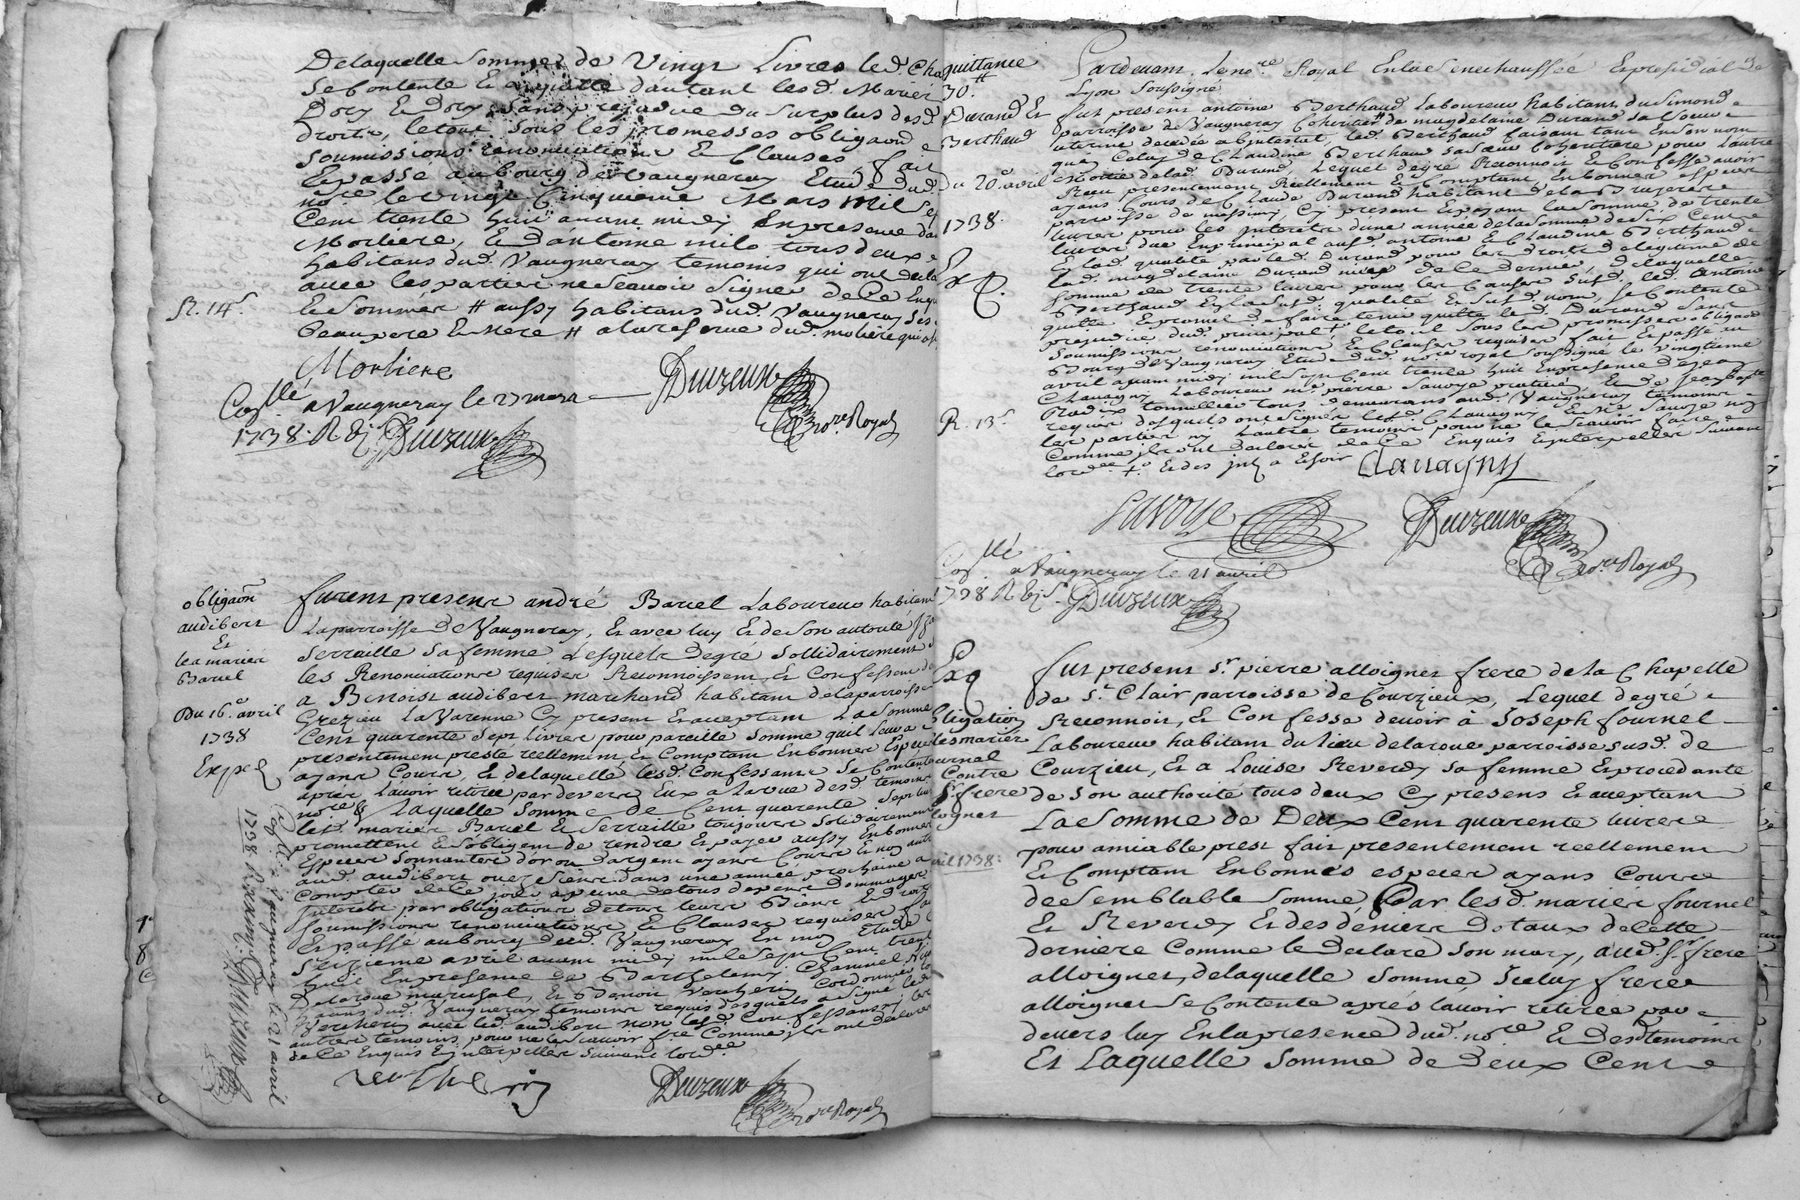 Delaquelle Somme de Vingt Livres led. Cha
Se Contente et quitte d'autant lesd. Mariés
Dory et Dory Sans prejudice du Surplus desd.
droits, le tout Sous les promesses obligaons
Soumissions renonciations et Clauses, fait
et passé au bourg de Vaugneray Etude dud.
nore le vingt Cinquieme Mars Mil Sep
Cent trente huit avant midy En presence de
Morliere, et d'antoine milo tous deux
habitans dud. Vaugneray temoins qui ont decla
avec les parties ne Scavoir Signer de Ce Enqu
et Sommés # aussy habitans dud. Vaugneray Ses
beaupere et frere # a la reserve dud. moliere qui a
R. 14s.
Morliere
Duizeux
nore Royal
Collé a Vaugneray le 27 mars
1738. R. Duizeux
obligaon
audibert
Et
les mariés
Barel
Du 16e. avril
1738
Exped
furent presens andré Barel Laboureur habitant
La parroisse de Vaugneray, et avec luy et de Son autorité
Serraille Sa femme Lesquels de gré Sollidairement
les Renonciations requises Reconnoissent et Confessent de
a Benoist audibert marchand habitant de la parroisse
Grezieu La Varenne Cy present et acceptant La Somme
Cent quarente Sept Livres pour pareille Somme quil leur a
presentement presté réellement et Comptant En bonnes Especes
ayans Cours, et de laquelle lesd. Confessans Se Contentent
après Lavoir retirée par devers Eux a la vue desd. temoins
nore & Laquelle Somme de Cent quarente Sept livres
lesd. mariés Barel et Serraille toujours Solidairement
promettent et Sobligent de rendre et payer aussy En bonnes
Especes Sonnantes d'or ou d'argent ayans Cours et non autre
aud. audibert ou es Siens dans une année prochaine a
Compter de Ce jour a peine de tous depens dommages
Interets par obligations de tous leurs Biens et droits
Soumissions renonciations et Clauses requises fait
et passé au bourg dud. Vaugneray En mon Etude le
Seizieme avril avant midy mil Sept Cent trente
huit En presence de Barthelemy
Delarue marechal, et Benoit Verchery Cordonnier
habitans dud. Vaugneray temoins requis desquels a Signé led.
Verchery avec led. audibert non lesd. Confessans, ny
autres temoins pour ne le Scavoir fre Comme ils ont declaré
de Ce Enquis et interpellés Suivant lordce
verchery
Duizeux
nore Royal
Collé a Vaugneray le 21 avril
1738 Duizeux
quittance
30#
Durand et
Berthaud
Du 20e. avril
1738.
Ex
R. 13s.
Pardevant Le nore. Royal En la Senechaussée et presidial de
Lyon Soussigné
fut present antoine Berthaud Laboureur habitant du Simond
parroisse de Vaugneray Coheritier de magdelaine Durand Sa Soeur
uterine decedée abintestat, led. Berthaud faisant tant En Son nom
que Celuy de Claudine Berthaud Sa Soeur Coheritiere pour l'autre
moitié de lad. Durand, Lequel de gré Reconnoit et Confesse avoir
Receu presentement Reellement et Comptant En bonnes especes
ayans Cours de Claude Durand habitant de la Brujere
parroisse de messimy, Cy present et payant la Somme de trente
livres pour les Interets d'une année de la Somme de Six Cent
livres due En principal aud. antoine et Claudine Berthaud
En lad. qualité par led. Durand pour les droits de legitime de
lad. magdelaine Durand de laquelle
Somme de trente livres pour les Causes Susd. led. antoine
Berthaud En la Susd. qualité et Susd. nom, Se Contente
quitte et promet de faire tenir quitte led. Durand Sans
prejudice dud. principal le tout Sous les promesses obligaons
Soumissions renonciations et Clauses requises fait et passé au
Bourg de Vaugneray Etude dud. nore royal Soussigné le vingtieme
avril avant midy mil Sept Cent trente huit En presence de
Chavagny Laboureur me pierre Savoye praticien, et de Jean Bapte
tonnellier tous demeurans aud. Vaugneray temoins
requis desquels ont Signés lesd. Chavagny et Me Savoye non
les parties ny L'autre temoin pour ne le Scavoir faire
Comme ils ont declaré de Ce Enquis et interpellés Suivant
lordce
Chavagny
Savoye
Duizeux
nore Royal
Collé a Vaugneray le 21 avril
1738 R Duizeux
Exp
obligation
les mariés
fournel
Contre
Sr frere
alloignet
avril 1738.
fut present Sr. pierre alloignet frere de la Chapelle
de St. Clair parroisse de Courzieux, Lequel de gré
Reconnoit, et Confesse devoir à Joseph fournel
Laboureur habitant du lieu de laroue parroisse susd. de
Courzieu, et a Louise Reverdy Sa femme Et procedante
de Son authorité tous deux Cy presens et acceptans
La Somme de Deux Cent quarente livres
pour amiable prest fait presentement reellement
Et Comptant En bonnes especes ayans Cours
de Semblable Somme, Par lesd. mariés fournel
Et Reverdy Et des deniers Dotaux de Cette
derniere Comme le Declare Son mary, aud. Sr. frere
alloignet, de laquelle Somme Iceluy frere
alloignet Se Contente aprés lavoir retirée par
devers luy En la presence dud. nore & Des temoins
Et Laquelle Somme de Deux Cent